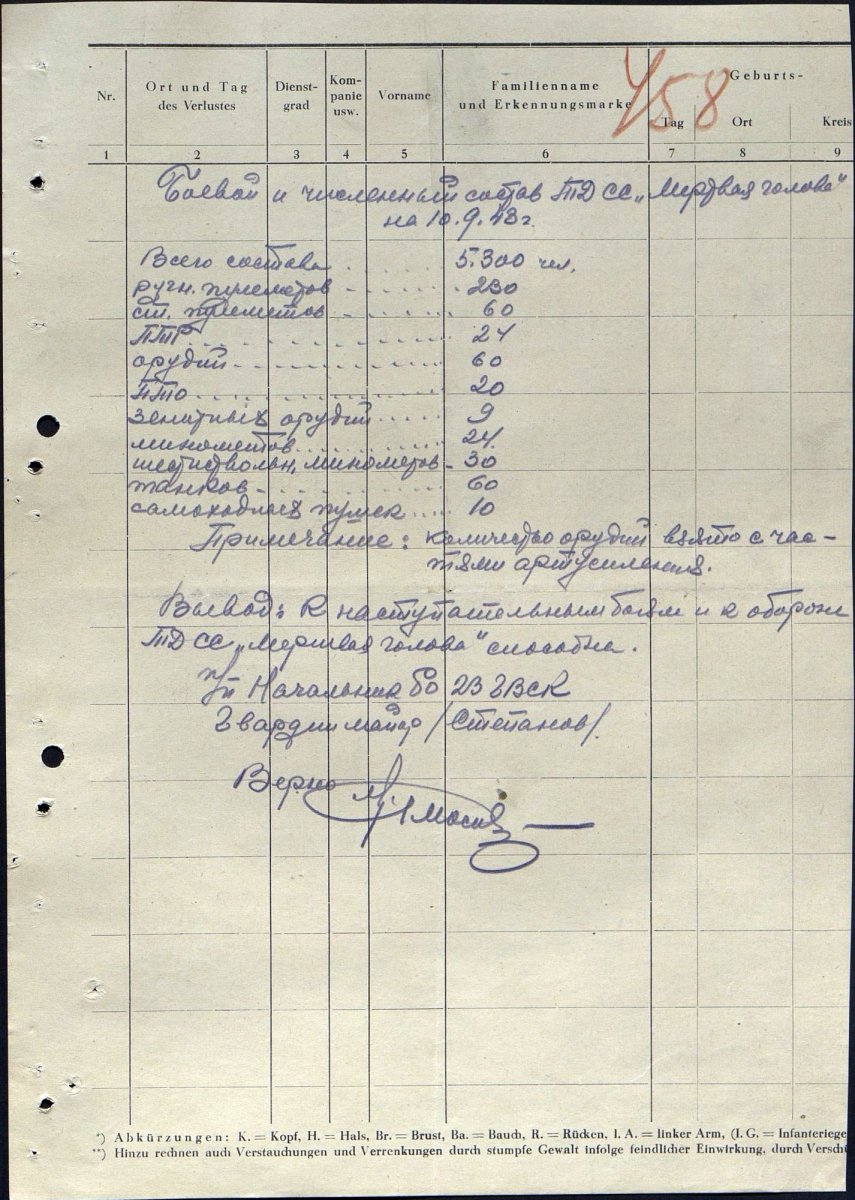 458
Nr.
Ort und Tag
des Verlustes
Dienst-
grad
Kom-
panie
usw.
Vorname
Familienname
und Erkennungsmarke
Geburts-
Tag
Ort
Kreis
1 2 3 4 5 6 7 8 9
Боевой и численный состав ТД СС „Мертвая голова"
на 10.9.43 г.
Всего состава . . . . . 5.300 чел.
ручн. пулеметов - - - - . . 230
ст. пулеметов - - . . . . 60
ПТР . . . . . . . . 24
орудий - - . . . . . . 60
ПТО . . . . . . . . 20
зенитных орудий . . . . . 9
минометов . . . . . . . 24
шестиствольн. минометов - 30
танков - . . . . . . . 60
самоходных пушек . . . . 10
Примечание: количество орудий взято с час-
тями артусиления.
Вывод: К наступательным боям и к обороне
ТД СС „Мертвая голова" способна.
п/п Начальник РО 23 ГВСК
Гвардии майор /Степанов/.
Верно
*) Abkürzungen: K. = Kopf, H. = Hals, Br. = Brust, Ba. = Bauch, R. = Rücken, l. A. = linker Arm, (I. G. = Infanteriege
**) Hinzu rechnen auch Verstauchungen und Verrenkungen durch stumpfe Gewalt infolge feindlicher Einwirkung, durch Versch